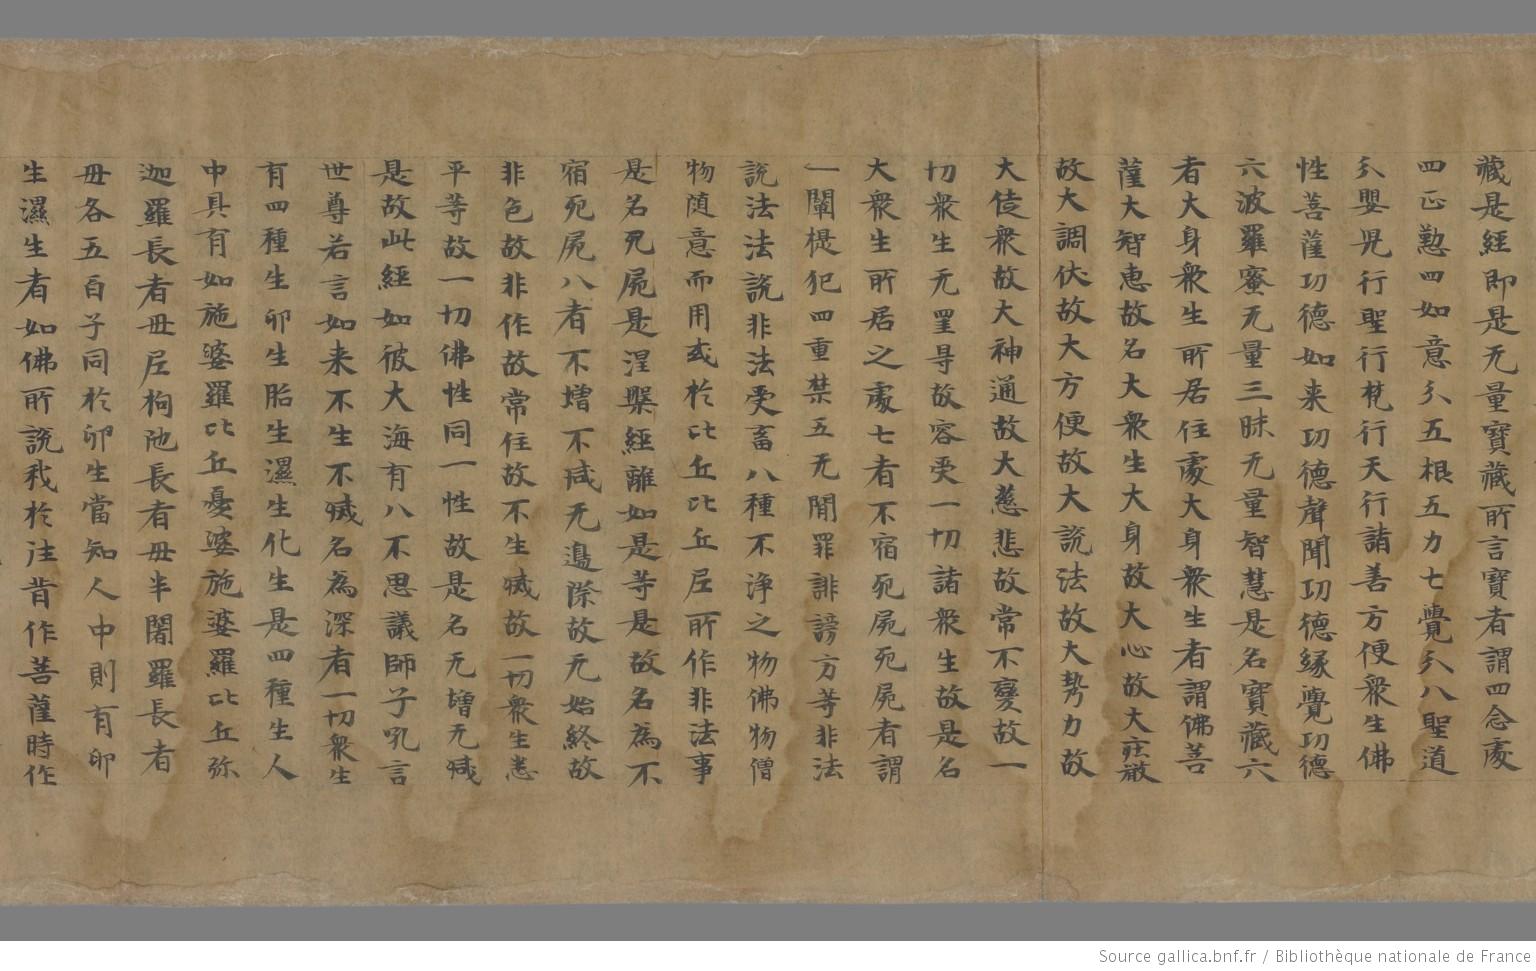 藏是經即是无量寶藏所言寶者謂四念處
四正懃四如意分五根五力七覺分八聖道
分嬰兒行聖行梵行天行諸善方便衆生佛
性菩薩功德如来功德聲聞功德縁覺功德
六波羅蜜无量三昧无量智慧是名寶藏六
者大身衆生所居住處大身衆生者謂佛菩
薩大智恵故名大衆生大身故大心故大莊嚴
故大調伏故大方便故大説法故大勢力故
大徒衆故大神通故大慈悲故常不變故一
切衆生无罣㝵故容受一切諸衆生故是名
大衆生所居之處七者不宿死屍死屍者謂
一闡提犯四重禁五无間罪誹謗方等非法
説法法説非法受畜八種不淨之物佛物僧
物随意而用或於比丘比丘尼所作非法事
是名死屍是涅槃經離如是等是故名為不
宿死屍八者不增不減无邉際故无始終故
非色故非作故常住故不生滅故一切衆生悉
平等故一切佛性同一性故是名无增无減
是故此經如彼大海有八不思議師子吼言
世尊若言如来不生不滅名為深者一切衆生
有四種生卵生胎生濕生化生是四種生人
中具有如施婆羅比丘憂婆施婆羅比丘弥
迦羅長者毋尼拘陁長者毋半闍羅長者
毋各五百子同於卵生當知人中則有卵
生濕生者如佛所説我於往昔作菩薩時作
Source gallica.bnf.fr / Bibliothèque nationale de France